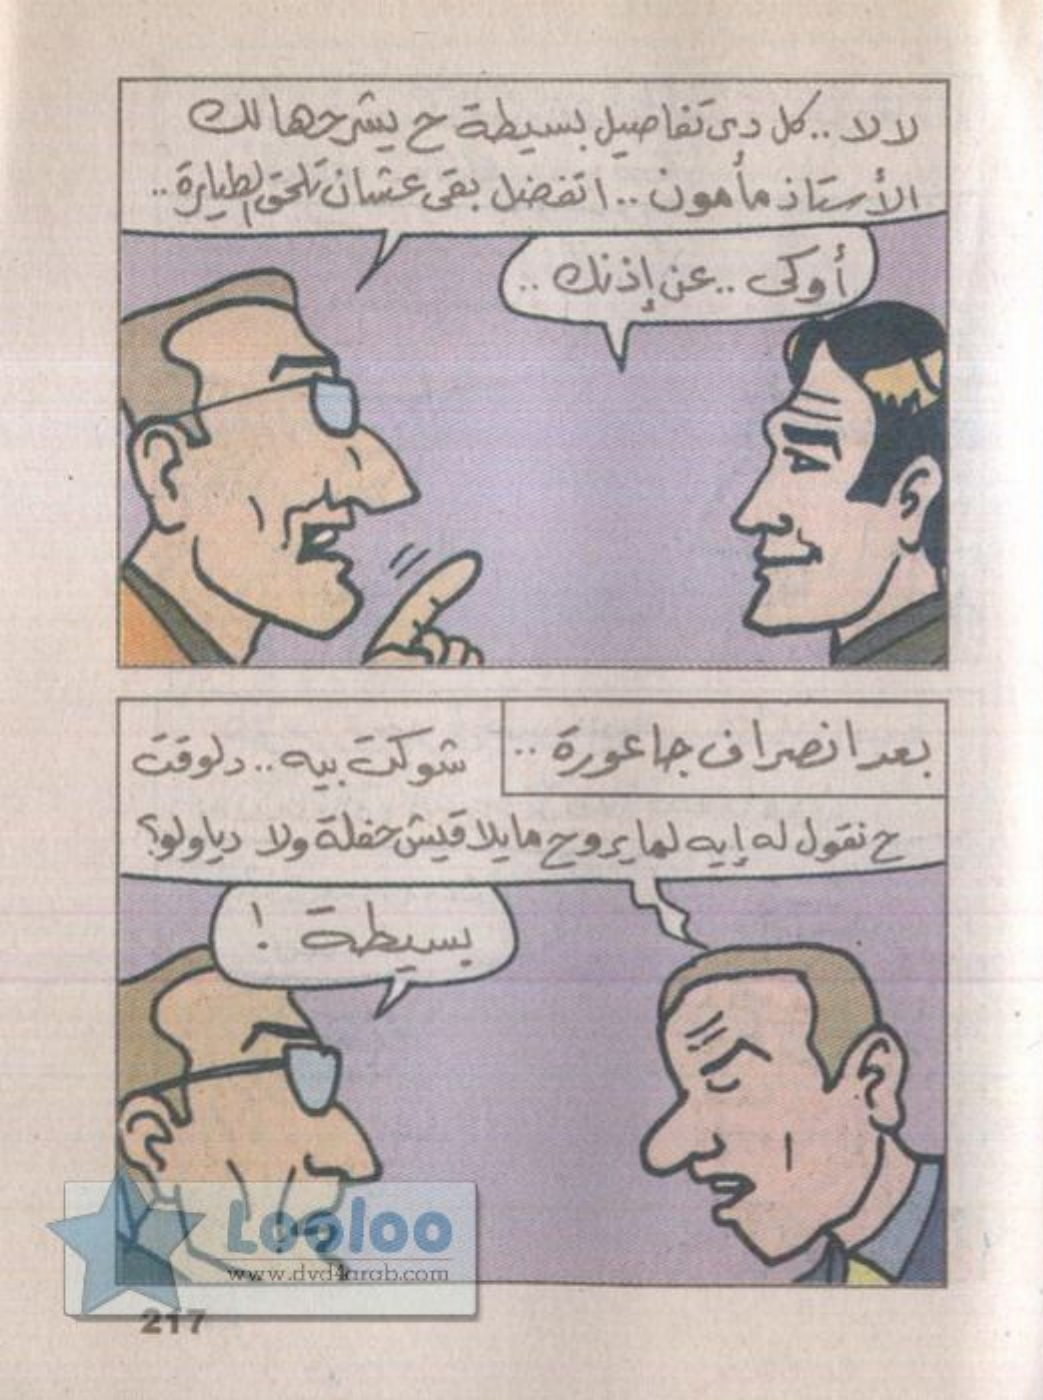 لا لا .. كل دى تفاصيل بسيطة ح يشرحها لك
الأستاذ مأمون .. اتفضل بقى عشان تلحق الطيارة ..
أوكى .. عن إذنك ..
بعد انصراف جاعورة ..
شوكت بيه .. دلوقت
ح نقول له إيه لما يروح مايلاقيش حفلة ولا دياولو؟
بسيطة !
Looloo
www.dvd4arab.com
217